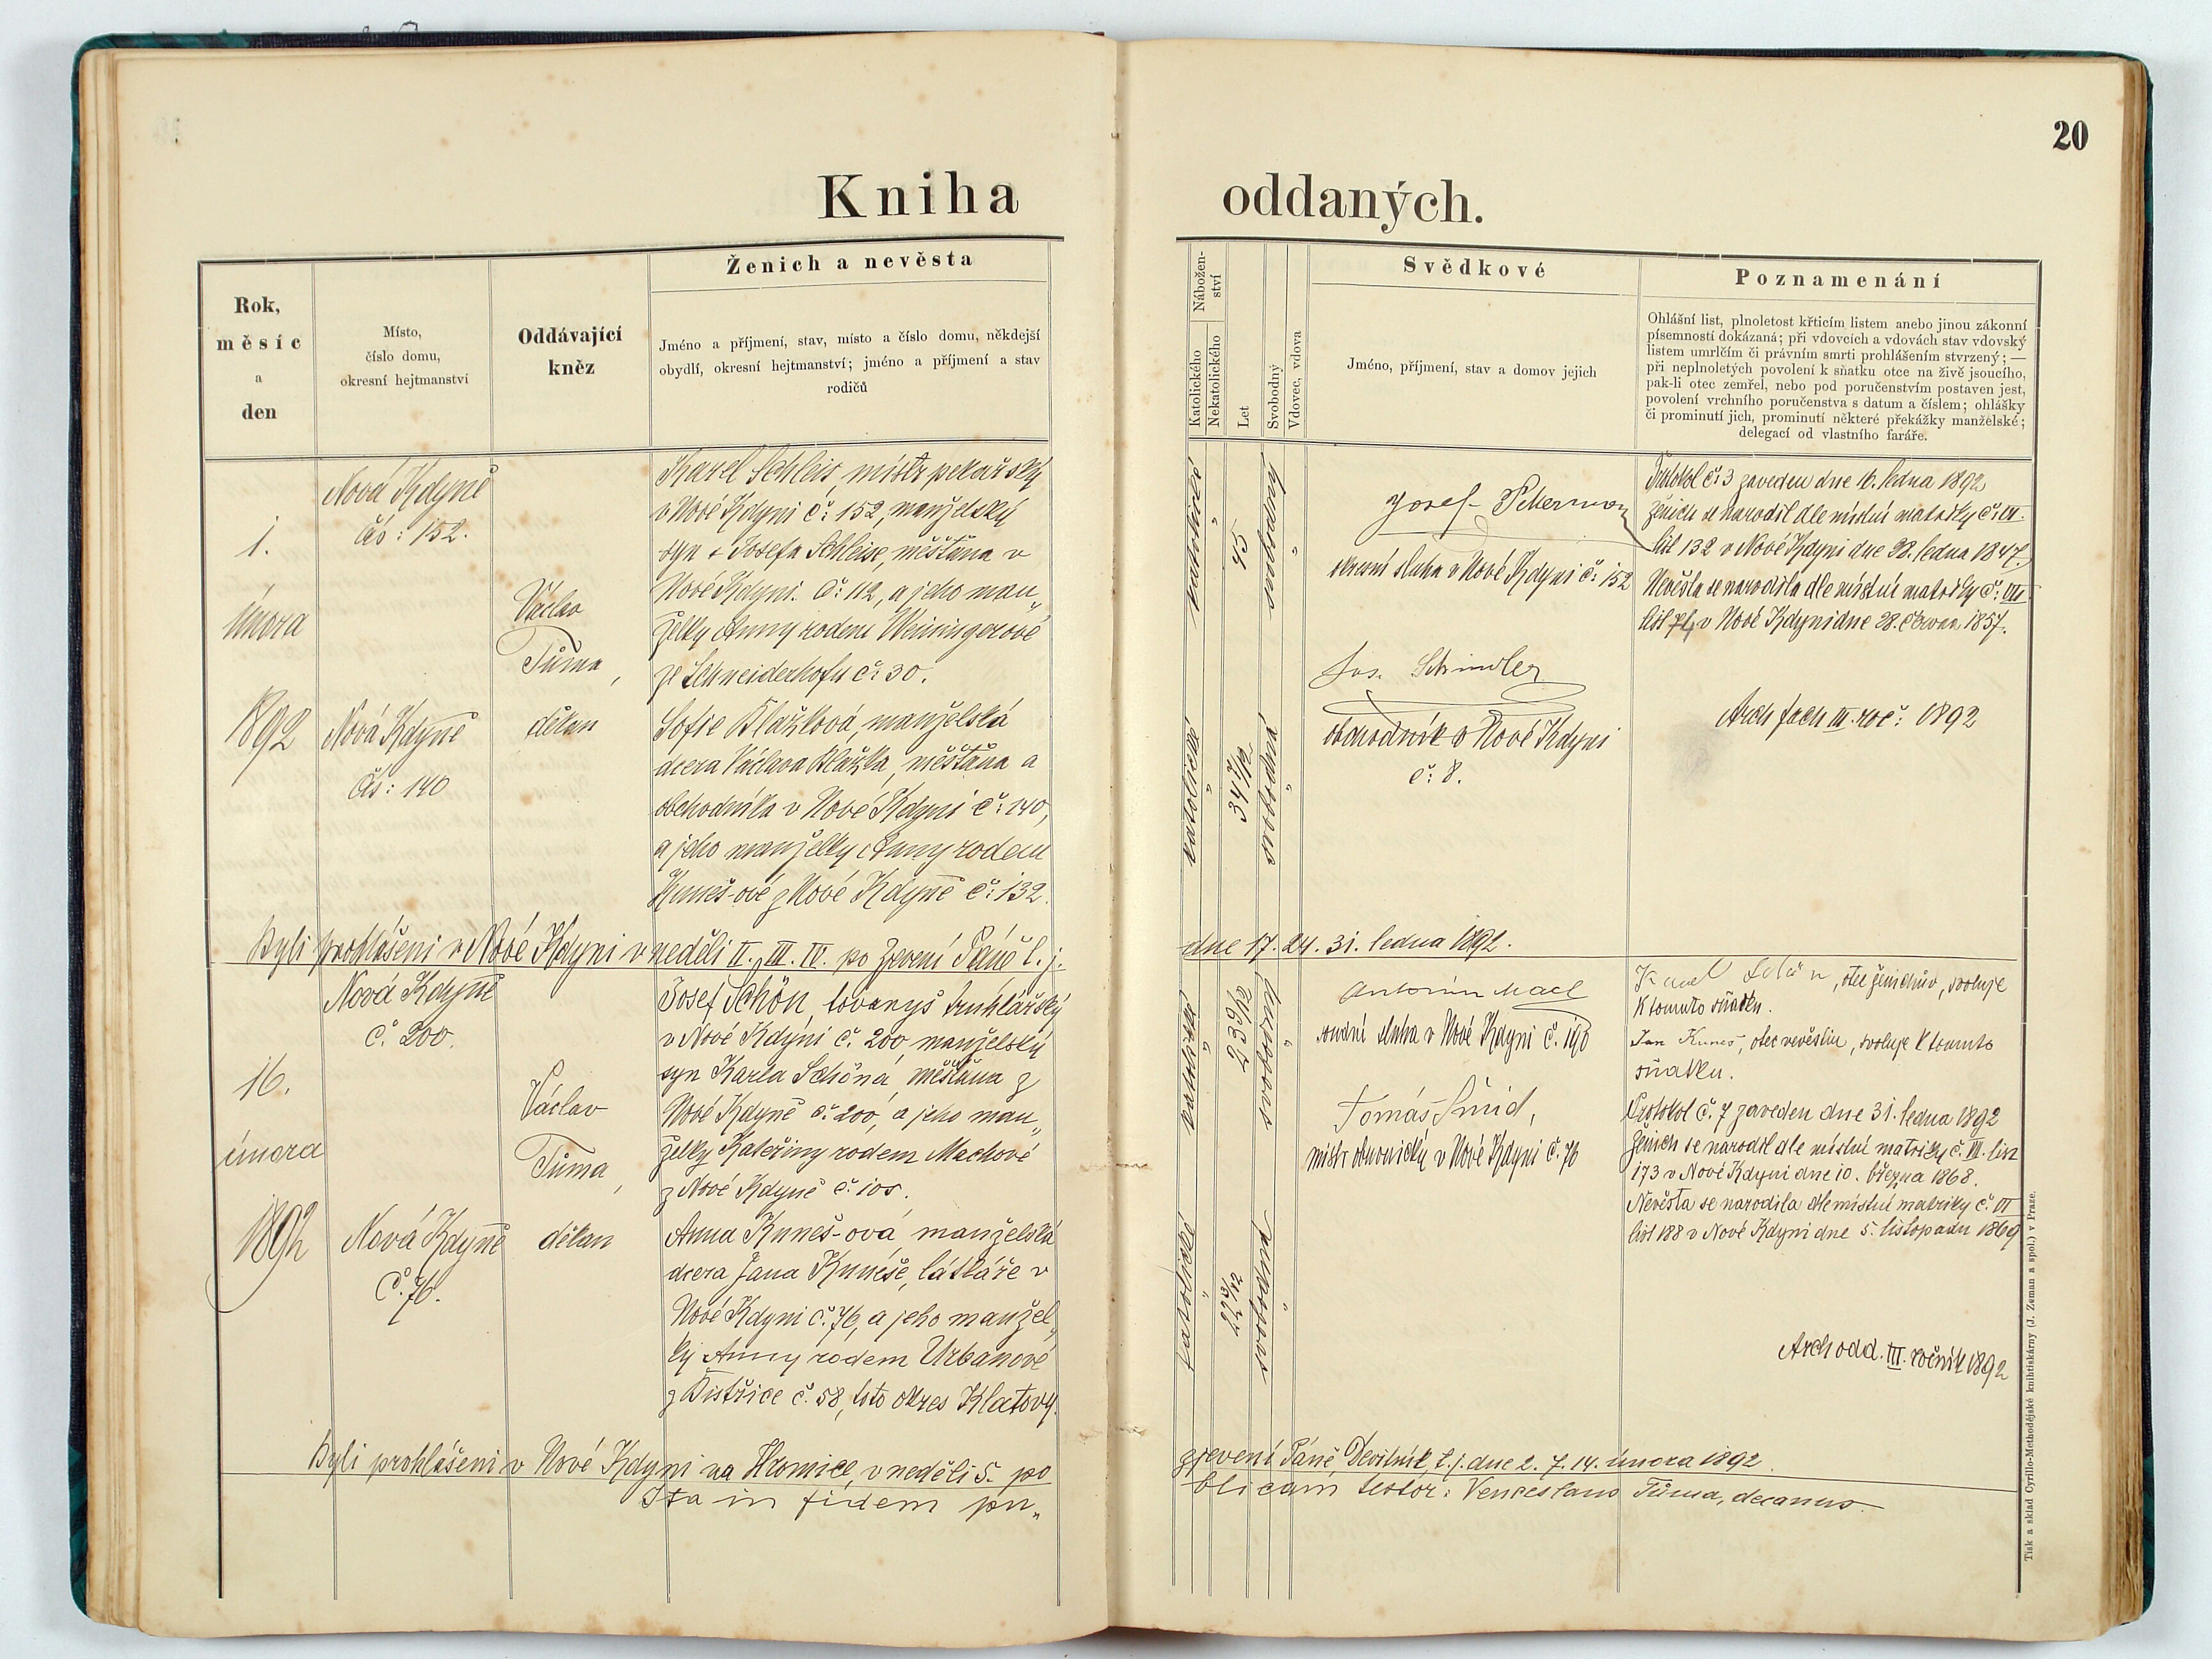 20
Kniha oddaných.
Rok,
měsíc
a
den
Místo,
číslo domu,
okresní hejtmanství
Oddávající
kněz
Ženich a nevěsta
Jméno a příjmení, stav, místo a číslo domu, někdejší
obydlí, okresní hejtmanství; jméno a příjmení a stav
rodičů
Nábožen-
ství
Katolického
Nekatolického
Let
Svobodný
Vdovec, vdova
Svědkové
Jméno, příjmení, stav a domov jejich
Poznamenání
Ohlášní list, plnoletost křticím listem anebo jinou zákonní
písemností dokázaná; při vdovcích a vdovách stav vdovský
listem umrlčím či právním smrti prohlášením stvrzený; —
při neplnoletých povolení k sňatku otce na živě jsoucího,
pak-li otec zemřel, nebo pod poručenstvím postaven jest,
povolení vrchního poručenstva s datum a číslem; ohlášky
či prominutí jich, prominutí některé překážky manželské;
delegací od vlastního faráře.
1.
února
1892
Nová Kdyně
čís: 152.
Nová Kdyně
čís: 140
Václav
Tůma,
děkan
Karel Schleis, mistr pekařský
v Nové Kdyni č: 152, manželský
syn + Josefa Schleise, měšťana v
Nové Kdyni č: 112, a jeho man„
želky Anny rodem Weiningerové
ze Schneiderhofu č: 30.
Sofie Blažková, manželská
dcera Václava Blažka, měšťana a
obchodníka v Nové Kdyni č: 140,
a jeho manželky Anny rodem
Kuneš-ové z Nové Kdyně č: 132.
katolické
"
45
svobodný
"
katolické
"
34 7/12
svobodná
"
Josef
obecní sluha v Nové Kdyni č: 152
Jos. Schindler
obchodník v Nové Kdyni
č: 8.
Protokol č: 3 zaveden dne 16. ledna 1892
Ženich se narodil dle místní matriky č: III.
list 132 v Nové Kdyni dne 28. ledna 1847.
Nevěsta se narodila dle místní matriky č: III
list 74 v Nové Kdyni dne 28. června 1857.
Arch fach III. roč: 1892
Byli prohlášeni v Nové Kdyni v neděli II. III. IV. po Zjevení Páně t. j. dne 17. 24. 31. ledna 1892.
16.
února
1892
Nová Kdyně
č. 200.
Nová Kdyně
č. 76.
Václav
Tůma,
děkan
Josef Schön, tovaryš truhlářský
v Nové Kdyni č. 200 manželský
syn Karla Schöna, měšťana z
Nové Kdyně č. 200, a jeho man„
želky Kateřiny rodem Machové
z Nové Kdyně č. 105.
Anna Kuneš-ová, manželská
dcera Jana Kuneše, látkáře v
Nové Kdyni č. 76, a jeho manžel„
ky Anny rodem Urbanové
z Bistřice č. 58, toto okres Klatovy.
katolické
"
23 9/12
svobodný
"
katolické
"
22 3/12
svobodná
"
Antonín Macl
soudní sluha v Nové Kdyni č. 190
Tomáš Šmíd,
mistr obuvnický v Nové Kdyni č. 76
Karel Schön, otec ženichův, svoluje
k tomuto sňatku.
Jan Kuneš, otec nevěstin, svoluje k tomuto
sňatku.
Protokol č. 7 zaveden dne 31. ledna 1892
Ženich se narodil dle místní matriky č. VI. list
173 v Nové Kdyni dne 10. března 1868.
Nevěsta se narodila dle místní matriky č. VI
list 188 v Nové Kdyni dne 5. listopadu 1869
Arch odd. III. ročník 1892
Byli prohlášeni v Nové Kdyni na Hromice, v neděli 5. po zjevení Páně Devítník, t. j. dne 2. 7. 14. února 1892.
Ita in fidem pu„ blicam testor: Venceslaus Tůma, decanus
Tisk a sklad Cyrillo-Methodějské knihtiskárny (J. Zeman a spol.) v Praze.